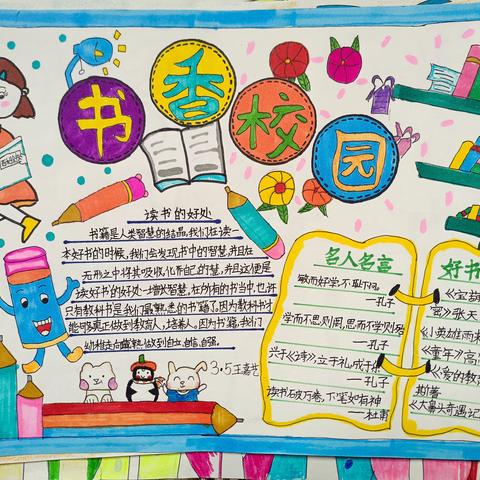 书香校园
读书的好处
书籍是人类智慧的结晶,我们在读一
本好书的时候,我们会发现书中的智慧,并且在
无形之中将其吸收,化作自己的智慧,并且这便是
读好书的好处一增长智慧,在所有的书当中,也许
只有教科书是我们最熟悉的书籍了,因为教科书才
能够真正做到教育人,培养人,因为书籍,我们
幼稚走向成熟,做到自立,自信,自强.
3.5王嘉艺
名人名言
敏而好学,不耻下问,
—孔子
学而不思则罔,思而不学则殆
—孔子
兴于《诗》,立于礼,成于乐
—孔子
读书破万卷,下笔如有神
—杜甫
好书
《宝葫
》张天
《小英雄雨来
《童年》高
《爱的教育
著
《大鼻头奇遇记